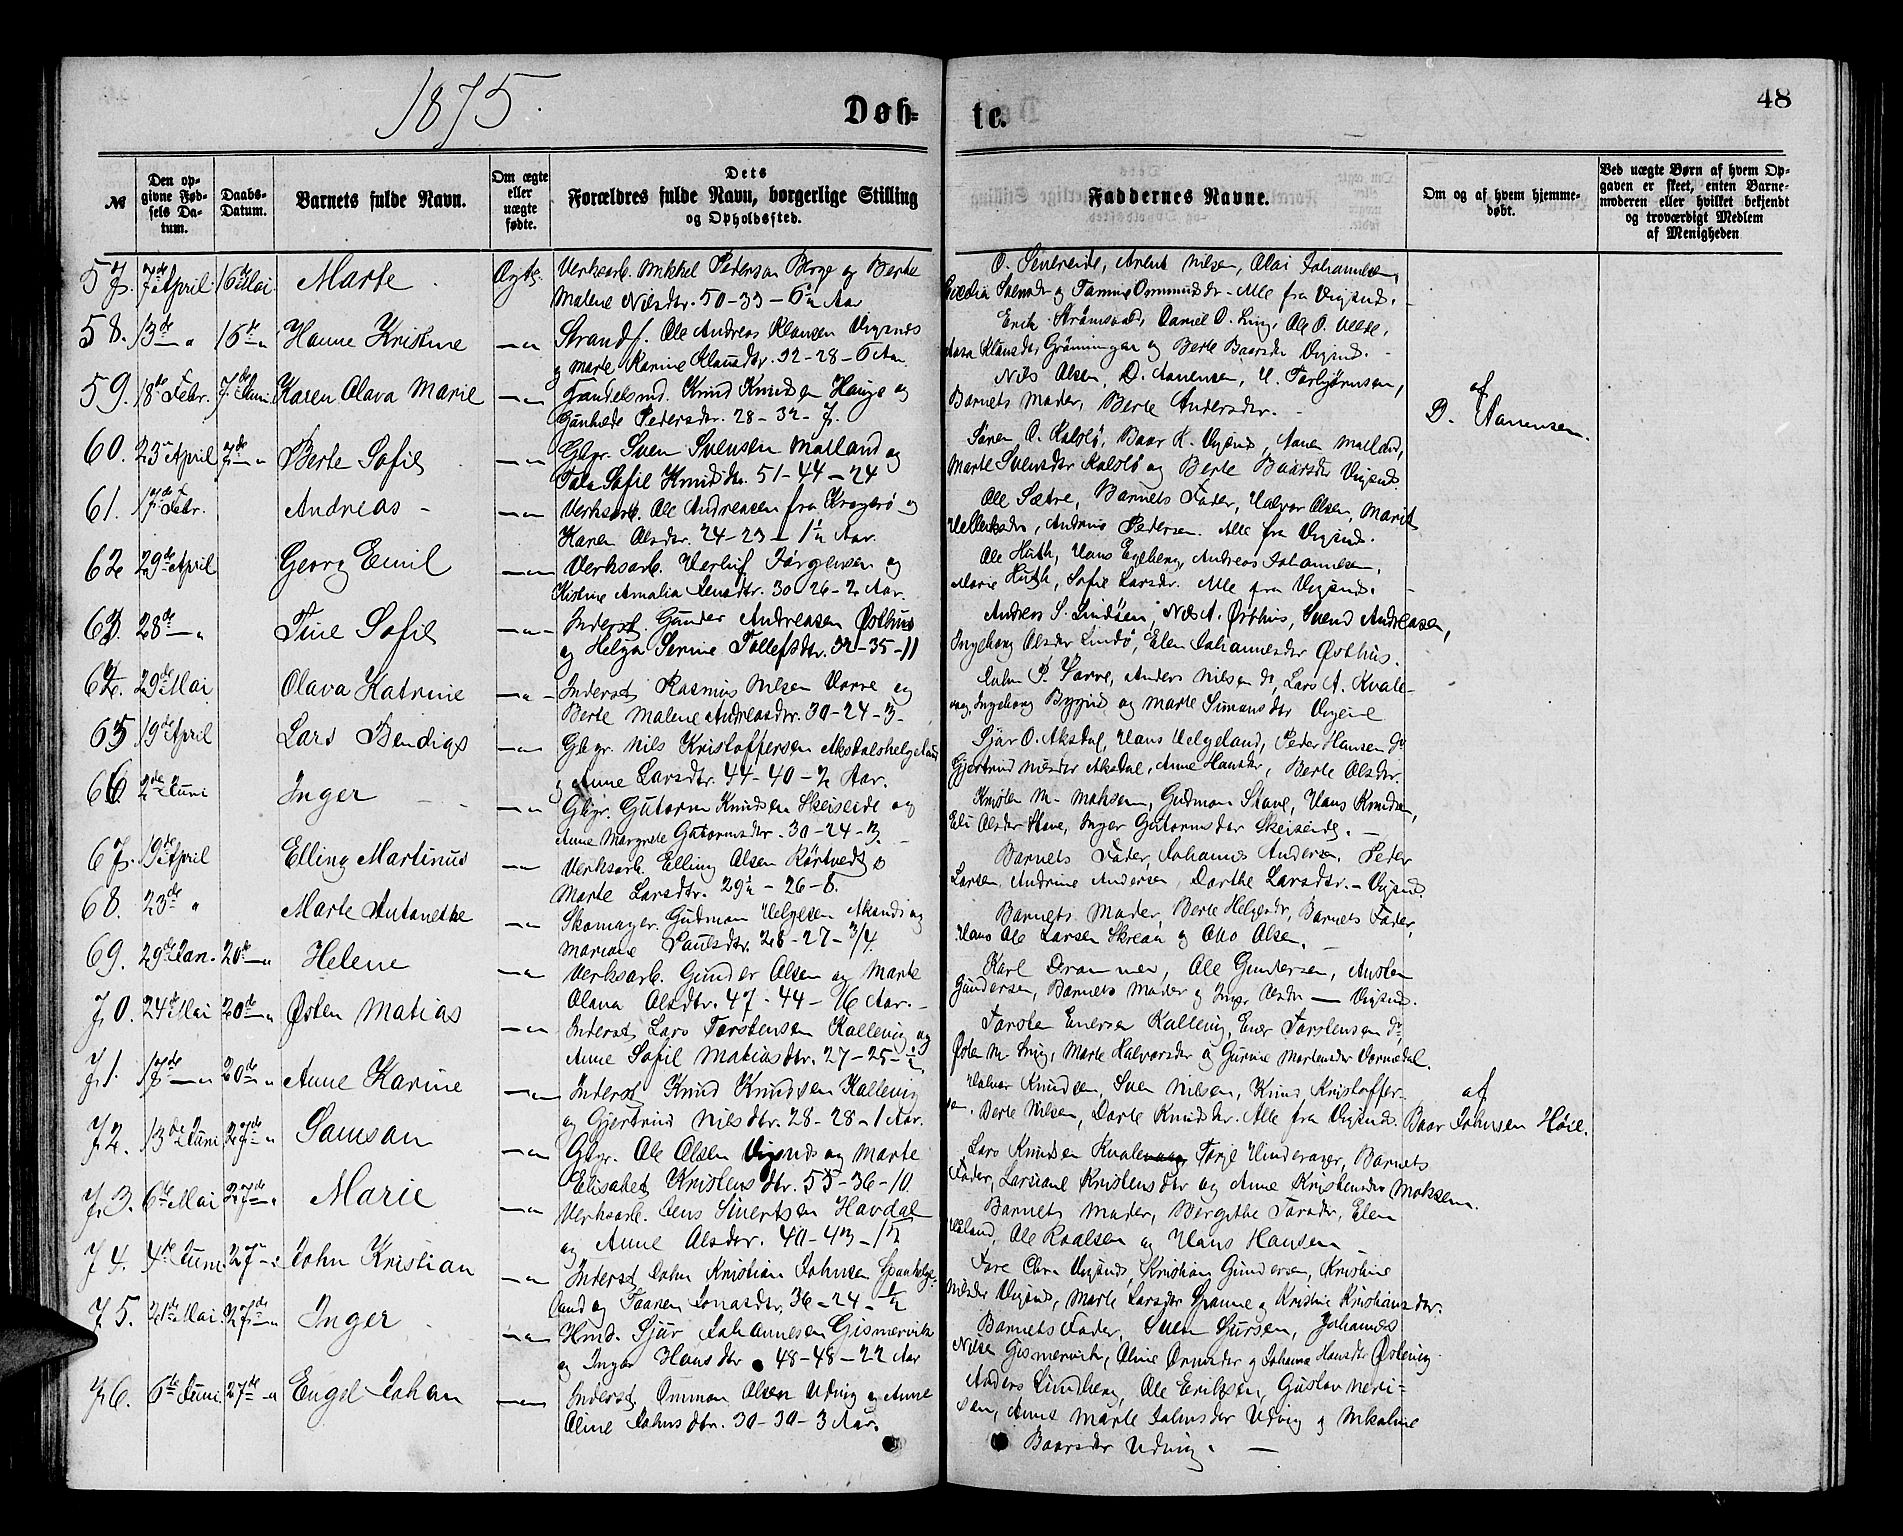 1875.
Døb-
te.
48
№
Den opgivne Fødsels Datum.
Daabs-Datum.
Barnets fulde Navn.
Om ægte eller uægte fødte.
Dets Forældres fulde Navn, borgerlige Stilling og Opholdssted.
Faddernes Navne.
Om og af hvem hjemmedøbt.
Ved uægte Børn af hvem Opgaven er skeet, enten Barnemoderen eller hvilket bekjendt og troværdigt Medlem af Menigheden
57. 7de April. 16de Mai. Marte. Ægte.
Verksarb. Mikkel Pederson Berge og Berte
Malene Nilsdtr. 50-33-6½ Aar
Arent Nilsen, Olai Johannesen,
og Tomine Ommundsdr. Alle fra Vigsnes.
58. 13de — " 16de " Hanne Kristine —"—
Strandf. Ole Andreas Klausen Vigsnes
og Marte Karine Klausdtr. 32-28-6 Aar
Erik Strømsvold, Daniel O. Ling, Ole O.
Klausdtr Grønningen og Berte Baarsdr Vigsnes.
59. 18de Febr. 7de Juni. Karen Olava Marie —"—
Handelsmd. Knud Knudsen Hauge og
Gunhilde Pedersdtr. 28-32-7.
Nils Olsen, D. Aanensen, H. Torbjørnsen,
Barnets Moder, Berte Andersdtr.
af
D. Aanensen.
60. 25 April 7de — " Berte Sofie —"—
Gbgr. Sven Svensen Matland og
Tala Sofie Knudsdtr. 51-44-24
Søren O. Kolslø, Baar K. Vigsnes, Aanen Matland,
Marte Svensdtr Kolslø og Berte Baarsdr Vigsnes.
61. 17de Febr. Andreas - —"—
Verksarb. Ole Andreasen fra Kragerø og
Karen Olsdtr. 24-23-1½ Aar.
Ole Sætre, Barnets Fader, Halvor Olsen, Marit
Andrine Pedersen. Alle fra Vigsnes.
62. 29de April Georg Emil —"—
Verksarb. Herluf Jørgensen og
Kistine Amalia Jensdtr. 30-26-2 Aar.
Ole Huth, Hans Engeberg, Andreas Johannesen,
Marie Huth, Sofie Larsdr. Alle fra Vigsnes.
63. 28de — " Tine Sofie —"—
Inderst Gunder Andreasen Østhus
og Helga Serine Tollefsdtr. 32-35-11
Andreas S. Lindøen, Nils A. Østhus, Svend Andreasen,
Ingeborg Olsdtr Lindø, Elen Johannesdtr Østhus.
64. 29de Mai Olava Katrine —"—
Inderst Rasmus Nilsen Vorre og
Berte Malene Andreasdtr. 30-24-3-
P. Vorre, Anders Nilsen do, Lars A. Kvale-
vaag, Ingeborg Bygnes og Marte Simonsdtr Vigsnes
65 19de April Lars Bendigs —"—
Gbgr. Nils Kristoffersen Aksdalshelgeland
og Anne Larsdtr. 44-40-2 Aar.
Sjur O. Aksdal, Hans Helgeland, Peder Hansen do
Gjertrud Nilsdtr Aksdal, Anne Hansdr, Berte Olsdtr.
66. 2de Juni Inger - - —"—
Gbgr. Gutorm Knudsen Skeiseide og
Anne Margrete Gutormsdtr. 30-24-3.
Kristen M. Moksem, Gudmon Stave, Hans Knudsen,
Eli Olsdtr Stave, Inger Gutormsdtr Skeiseide.
67. 19de April Elling Martinus —"—
Verksarb. Elling Olsen Rørtvedt og
Marte Larsdtr. 29½-26-8.
Barnets Fader, Johannes Andersen, Peder
Larsen, Andrine Andersen, Dorthe Larsdtr. — Vigsnes
68. 23de " Marte Antonette —"—
Skomager. Gudmon Helgesen Aksnes og
Mariane Paulsdtr. 26-27-3/4.
Barnets Moder, Berte Helgesdr, Barnets Fader,
Hans Ole Larsen Skreaa og Otto Olsen.
69. 29de Jan. 20de — " Helene —"—
Verksarb. Gunder Olsen og Marte
Olava Olsdtr. 47-44-16 Aar.
Karl Drammen, Ole Gundersen, Austen
Gundersen, Barnets Moder og Inger Olsdtr — Vigsnes.
70. 24de Mai 20de — " Østen Matias —"—
Inderst Lars Torstensen Kallevig og
Anne Sofie Matiasdtr. 27-25-½
Torsten Enersen Kallevig, Ener Torstensen do,
Østen M. Snig, Marte Halvorsdtr og Gurine Mortensdtr Vormedal.
71. 17de — " 20de — " Anne Karine —"—
Inderst Knud Knudsen Kallevig
og Gjertrud Nilsdtr. 28-28-1 Aar.
Halvor Knudsen, Sven Nilsen, Knud Kristoffer-
sen, Berte Nilsen, Dorte Knudsdtr. Alle fra Vigsnes.
af
Baar Johnsen Høie.
72. 13de Juni 27de — " Samson —"—
Gbgr. Ole Olsen Vigsnes og Marte
Elisabet Kristensdtr. 55-36-10.
Lars Knudsen Kvalevaag, Terje Hinderager, Barnets
Fader, Larsiane Kristensdtr og Anne Kristensdtr Moksem.
73. 6de Mai 27de — " Marie —"—
Verksarb. Jens Sivertsen Havdal
og Anne Olsdtr. 40-43-1½
Barnets Moder, Bergithe Torsdr, Elen
Ole Roalsen og Hans Hansen —
74. 4de Juni. 27 — " John Kristian —"—
Inderst John Kristian Johnsen Spanhelge-
land og Taaren Jonasdtr. 36-24-½
Tore Vigsnes, Kristian Gundersen, Kristine
Nilsdtr Vigsnes, Marte Larsdtr Spanne og Kristine Kristiansdtr.
75. 21de Mai. 27de — " Inger - —"—
Hmd. Sjur Johannesen Gismervik
og Inger Hansdtr 48-48-22 Aar
Barnets Fader, Sven Sjursen, Johannes
Nilsen Gismervik, Oline Ormsdtr og Johanna Hansdtr Østevig.
76. 6te Juni. 27de — " Engel Johan —"—
Inderst Ommon Olsen Udvig og Anne
Oline Johnsdtr. 30-30-3 Aar.
Anders Lindberg, Ole Eriksen, Gustav Neri-
sen, Anne Marte Johnsdtr Udvig og Mikaline
Baarsdtr Udvig. —